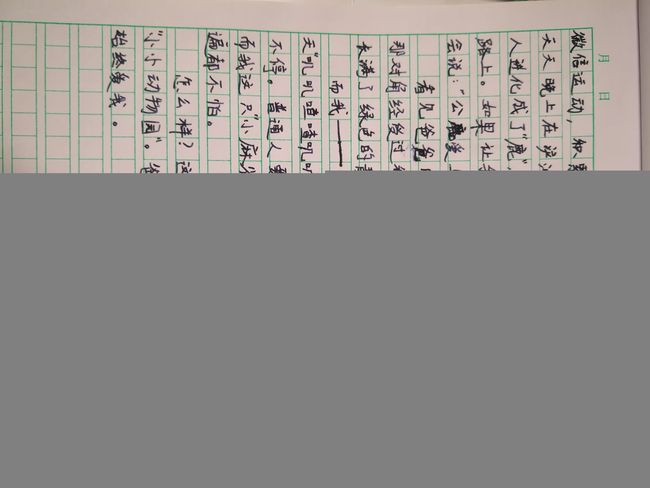 月 日
微信运动，
天天晚上在
人进化成了"鹿"，
路上。如果让
会说："公
看见爸爸
那对角经
长满了绿色的
而我——
天"叽叽喳喳叽叽
不停。普通人
而我这只"小麻
遍都不怕。
怎么样？这
"小小动物园"。
始终爱我。